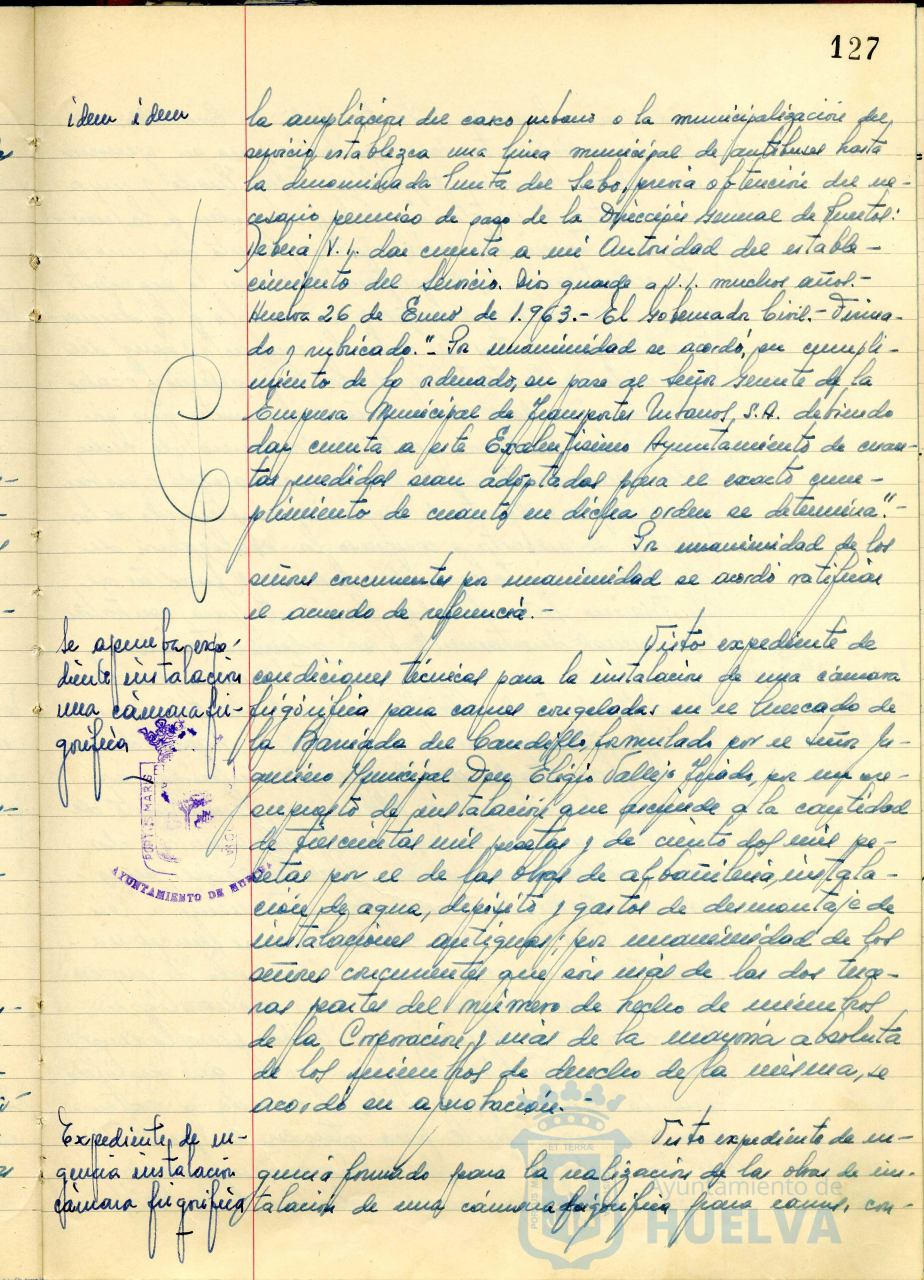 127
idem idem
la ampliación del casco urbano o la municipalización del
servicio, establezca una línea municipal de autobuses hasta
la denominada Punta del Sebo, previa obtención del ne-
cesario permiso de paso de la Dirección General de Puertos:
Deberá V.I. dar cuenta a mi Autoridad del estable-
cimiento del Servicio. Dios guarde a V.I. muchos años.-
Huelva 26 de Enero de 1.963.- El Gobernador Civil.- Firma-
do y rubricado."- Por unanimidad se acordó, en cumpli-
miento de lo ordenado, su pase al Señor Gerente de la
Empresa Municipal de Transportes Urbanos, S.A. debiendo
dar cuenta a este Excelentísimo Ayuntamiento de cuan-
tas medidas sean adoptadas para el exacto cum-
plimiento de cuanto en dicha orden se determina".-
Por unanimidad de los
señores concurrentes por unanimidad se acordó ratificar
el acuerdo de referencia.-
Se aprueba expe-
diente instalación
una cámara fri-
gorífica
Visto expediente de
condiciones técnicas para la instalación de una cámara
frigorífica para carnes congeladas en el Mercado de
la Barriada del Carmen, formulado por el Señor In-
geniero Municipal Don Eligio Vallejo Tejado, por un pre-
supuesto de instalación que asciende a la cantidad
de trescientas mil pesetas y de ciento dos mil pe-
setas por el de las obras de albañilería, instala-
ción de agua, depósito y gastos de desmontaje de
instalaciones antiguas; por unanimidad de los
señores concurrentes que son más de las dos terce-
ras partes del número de hecho de miembros
de la Corporación y más de la mayoría absoluta
de los miembros de derecho de la misma, se
acordó su aprobación.-
PORTUS MARIS
AYUNTAMIENTO DE HUELVA
Expediente de ur-
gencia instalación
cámara frigorífica
Visto expediente de ur-
gencia formado para la realización de las obras de ins-
talación de una cámara frigorífica para carnes con-
ET TERRÆ
Ayuntamiento de
HUELVA